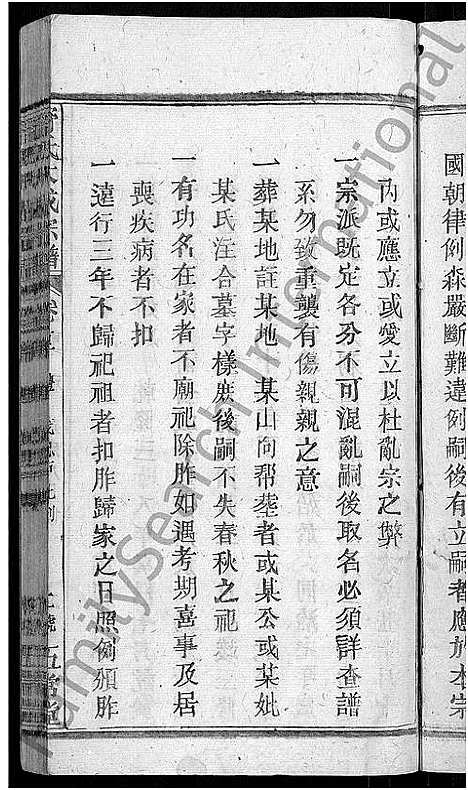 國朝律例森嚴斷難違例嗣後有立嗣者應於本宗
內或應立或愛立以杜亂宗之弊
一宗派既定各分不可混亂嗣後取名必須詳查譜
系勿致重襲有傷親親之意
一葬某地註某地某山向帮塋者或某公或某妣
某氏注合墓字樣庶後嗣不失春秋之祀
一有功名在家者不廟祀除胙如遇考期喜事及居
喪疾病者不扣
一遠行三年不歸祀祖者扣胙歸家之日照例頒胙
氏大成宗譜
五常堂
FamilySearch International